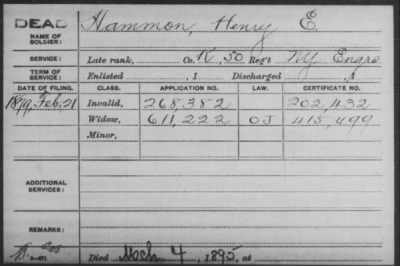 DEAD
NAME OF SOLDIER: Hammon, Henry E.
SERVICE: Late rank, Co. K, 50 Reg't NY Engrs
TERM OF SERVICE: Enlisted , 1 Discharged , 1
DATE OF FILING. CLASS. APPLICATION NO. LAW. CERTIFICATE NO.
1879, Feb. 21 Invalid, 268,382 202,432
Widow, 611,222 OJ 415,499
Minor,
ADDITIONAL SERVICES:
REMARKS:
Died Mch. 4, 1895, at